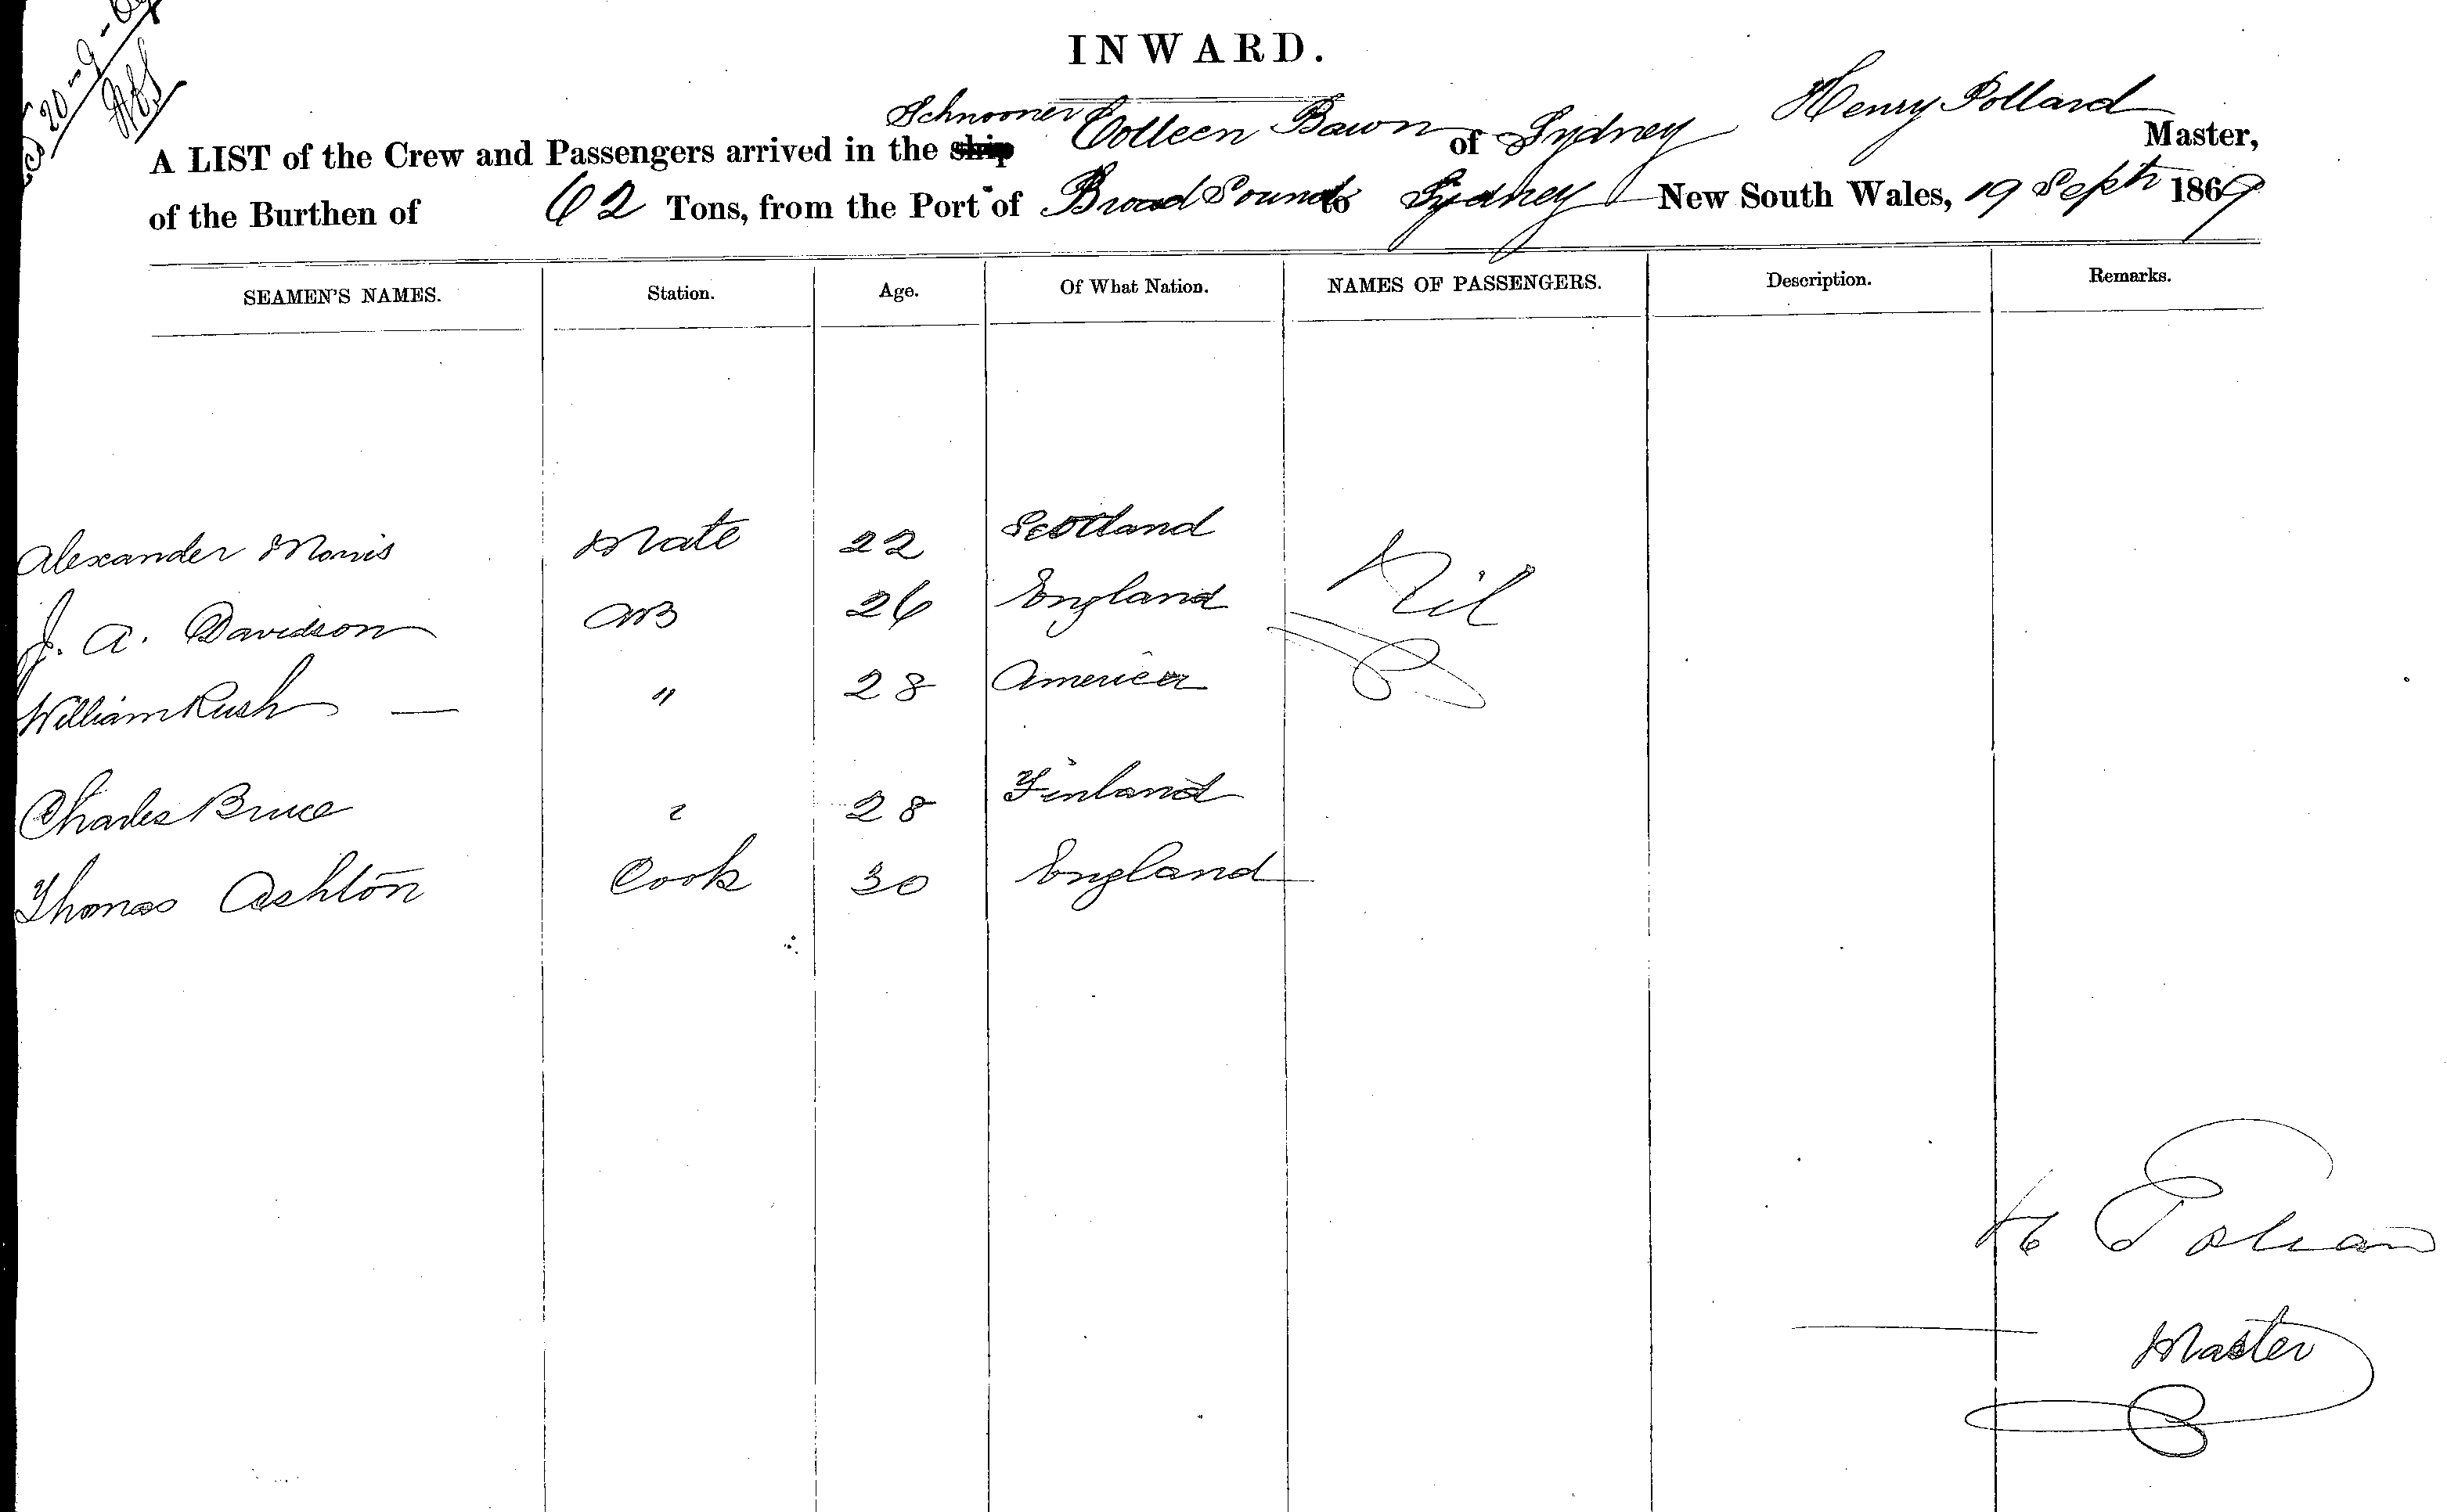 20-9-69
INWARD.
Schnooner Colleen Bawn of Sydney Henry Pollard Master,
A LIST of the Crew and Passengers arrived in the ship
of the Burthen of 62 Tons, from the Port of Broad Sound to Sydney New South Wales, 19 Septr 1869
SEAMEN'S NAMES. Station. Age. Of What Nation. NAMES OF PASSENGERS. Description. Remarks.
Alexander Morris Mate 22 Scotland Nil
J. A. Davidson AB 26 England
William Rush — " 28 America
Charles Bruce " 28 Finland
Thomas Ashton Cook 30 England
H
Master